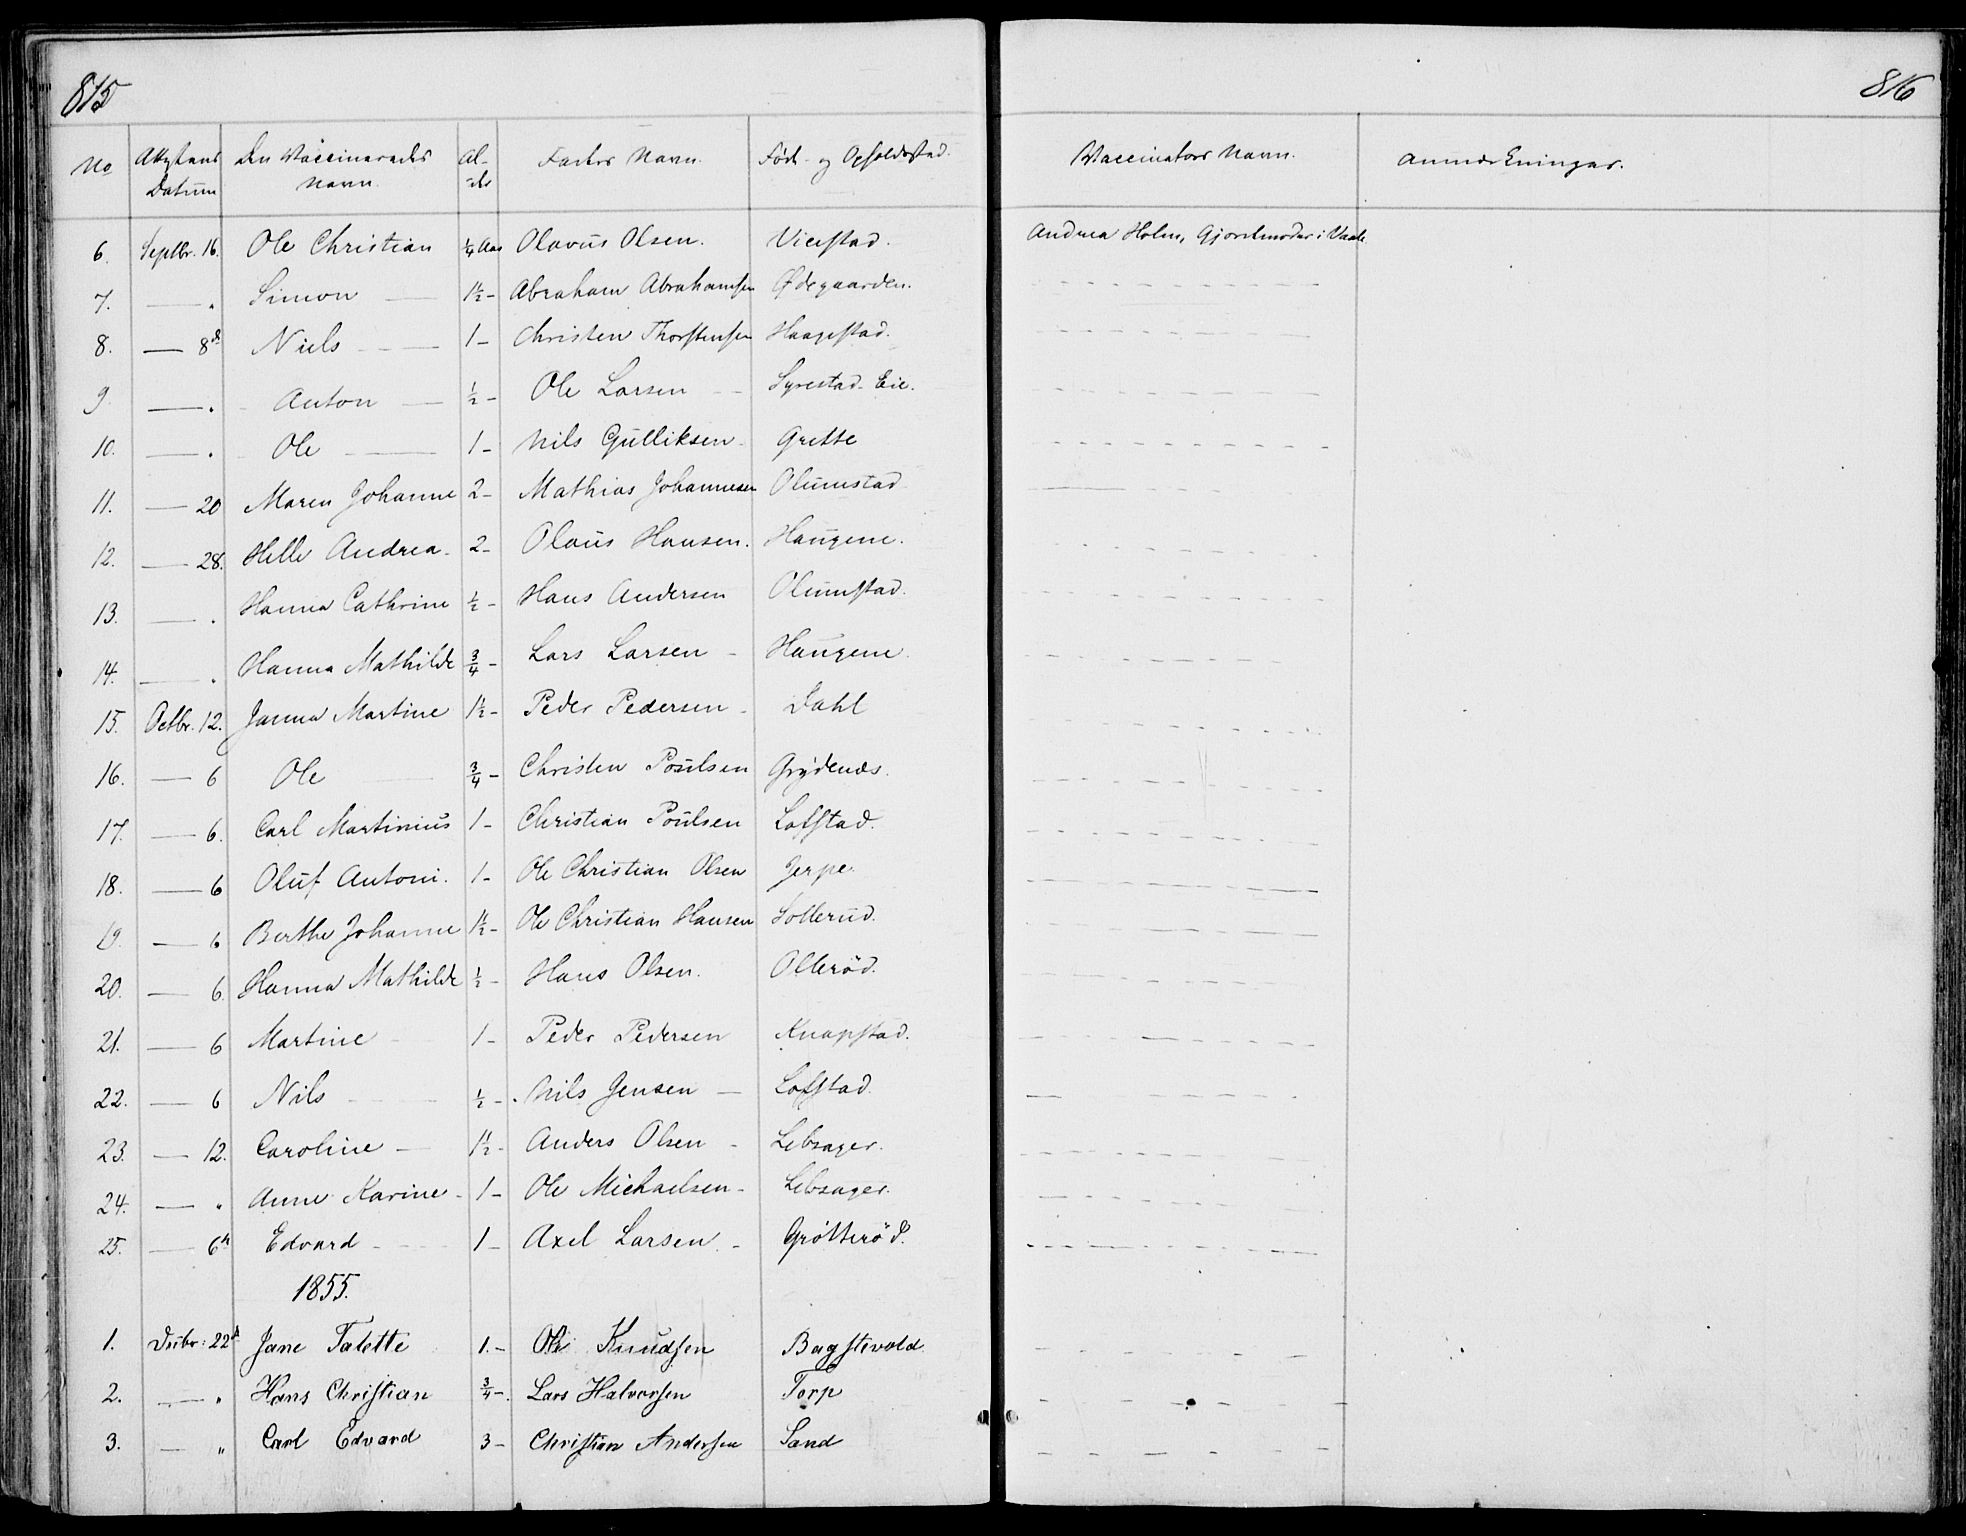 815
816
No Attestens Datum Den Vaccineredes Navn. Al-der Faders Navn. Føde- og Opholdsstad. Vaccinators Navn. Anmærkninger.
6. Septbr. 16. Ole Christian ¼ Aar Olavus Olsen. Vivestad. Andrea Holm, Gjordmoder i Vaale
7. — „ Simon — 1½ - Abraham Abrahamsen Ødegaarden.
8. — 8d Niels — 1 - Christen Thorstensen Haagestad.
9. — „ Anton — ½ - Ole Larsen Syrestad-Eie.
10. — „ Ole — 1 - Nils Gulliksen Grette
11. — 20 Maren Johanne 2 - Mathias Johannesen Olumstad
12. — 28. Helle Andrea 2 - Olaus Hansen. Haugene.
13. — „ Hanna Cathrine ½ - Hans Andersen Olumstad.
14. — „ Hanna Mathilde ¾ - Lars Larsen Haugene.
15. Octbr. 12. Janna Martine 1½ - Peder Pedersen Dahl
16. — 6 Ole ¾ - Christen Poulsen Grydenæs.
17. — 6. Carl Martinius 1 - Christian Poulsen Lofstad.
18. — 6 Oluf Antoni. 1 - Ole Christian Olsen Jerpe.
19. — 6 Berthe Johanne 1½ - Ole Christian Hansen Sollerud.
20. — 6. Hanna Mathilde ½ - Hans Olsen. Ollerød.
21. — 6 Martine 1 - Peder Pedersen Knapstad.
22. — 6 Nils ½ - Nils Jensen — Lofstad.
23. — 12. Caroline — 1½ - Anders Olsen Lebsager.
24. — „ Anne Karine 1 - Ole Michaelsen Lebsager.
25. — 6 Edvard 1 - Axel Larsen Grötteröd.
1855.
1. 22d Jane Talette 1. - Ole Knudsen Bagstevold.
2. — „ Hans Christian ¾ - Lars Halvorsen Torp
3. — „ Carl Edvard 3 - Christian Andersen Sand